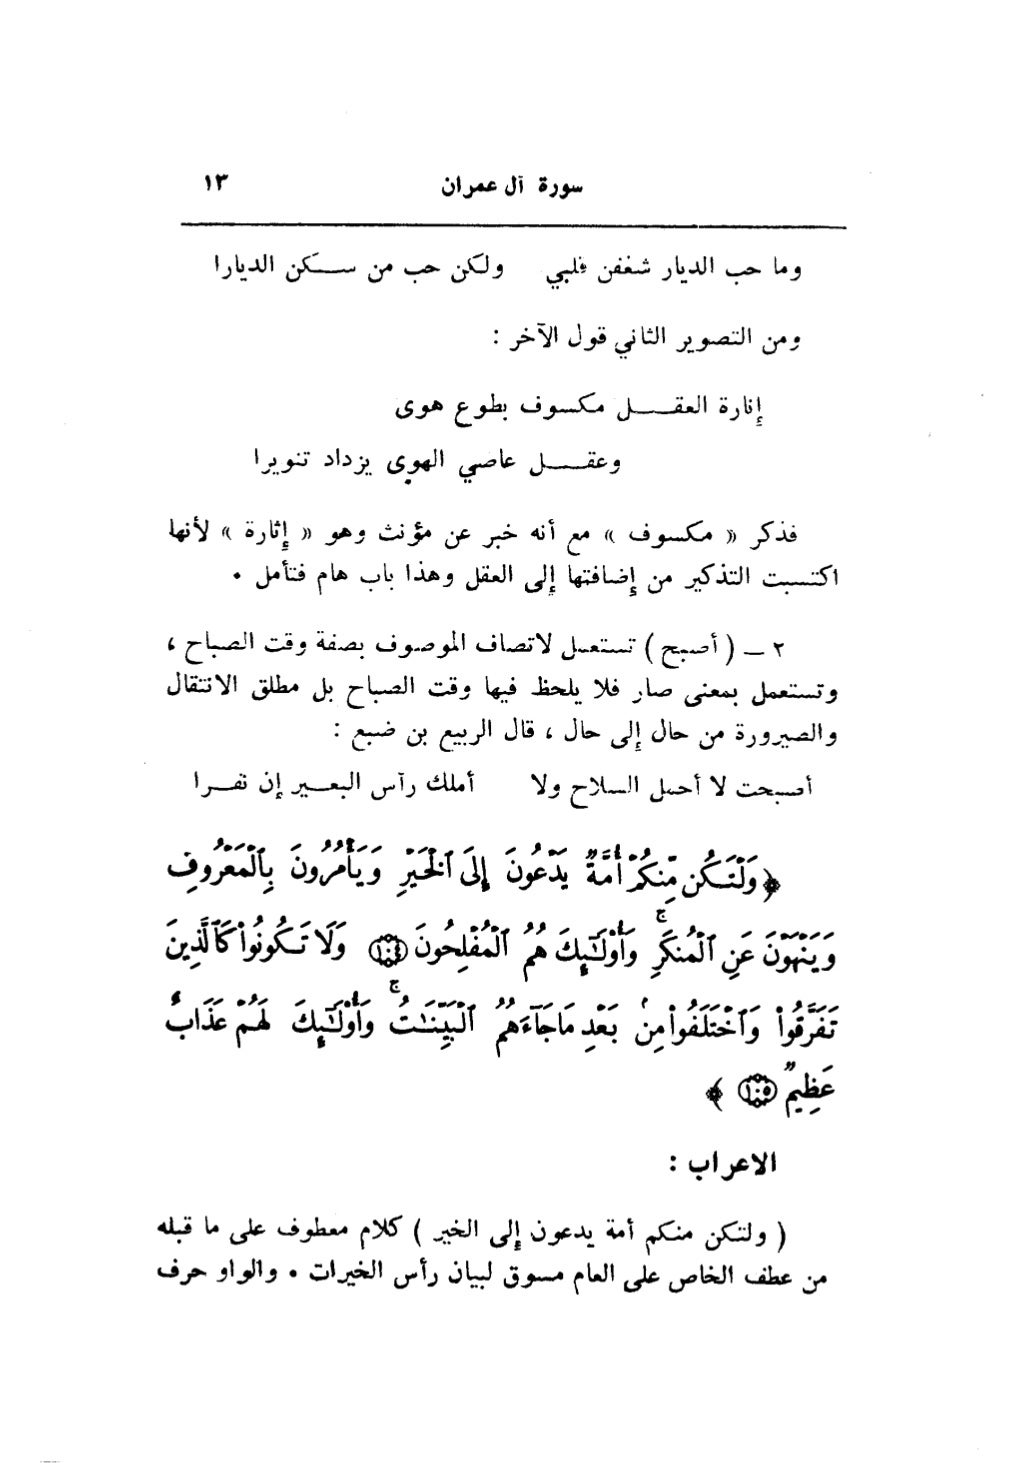 سورة آل عمران ١٣
وما حب الديار شغفن قلبي ولكن حب من ســكن الديارا
ومن التصوير الثاني قول الآخر :
إنارة العقـــل مكسوف بطوع هوى
وعقـــل عاصي الهوى يزداد تنويرا
فذكر « مكسوف » مع أنه خبر عن مؤنث وهو « إثارة » لأنها
اكتسبت التذكير من إضافتها إلى العقل وهذا باب هام فتأمل .
٢ ــ ( أصبح ) تستعمل لاتصاف الموصوف بصفة وقت الصباح ،
وتستعمل بمعنى صار فلا يلحظ فيها وقت الصباح بل مطلق الانتقال
والصيرورة من حال إلى حال ، قال الربيع بن ضبع :
أصبحت لا أحمل السلاح ولا أملك رأس البعــير إن نفــرا
﴿ وَلْتَكُن مِّنكُمْ أُمَّةٌ يَدْعُونَ إِلَى ٱلْخَيْرِ وَيَأْمُرُونَ بِٱلْمَعْرُوفِ
وَيَنْهَوْنَ عَنِ ٱلْمُنكَرِ ۚ وَأُو۟لَـٰٓئِكَ هُمُ ٱلْمُفْلِحُونَ ١٠٤ وَلَا تَكُونُوا۟ كَٱلَّذِينَ
تَفَرَّقُوا۟ وَٱخْتَلَفُوا۟ مِنۢ بَعْدِ مَا جَآءَهُمُ ٱلْبَيِّنَـٰتُ ۚ وَأُو۟لَـٰٓئِكَ لَهُمْ عَذَابٌ
عَظِيمٌ ١٠٥ ﴾
الاعراب :
( ولتكن منكم أمة يدعون إلى الخير ) كلام معطوف على ما قبله
من عطف الخاص على العام مسوق لبيان رأس الخيرات . والواو حرف